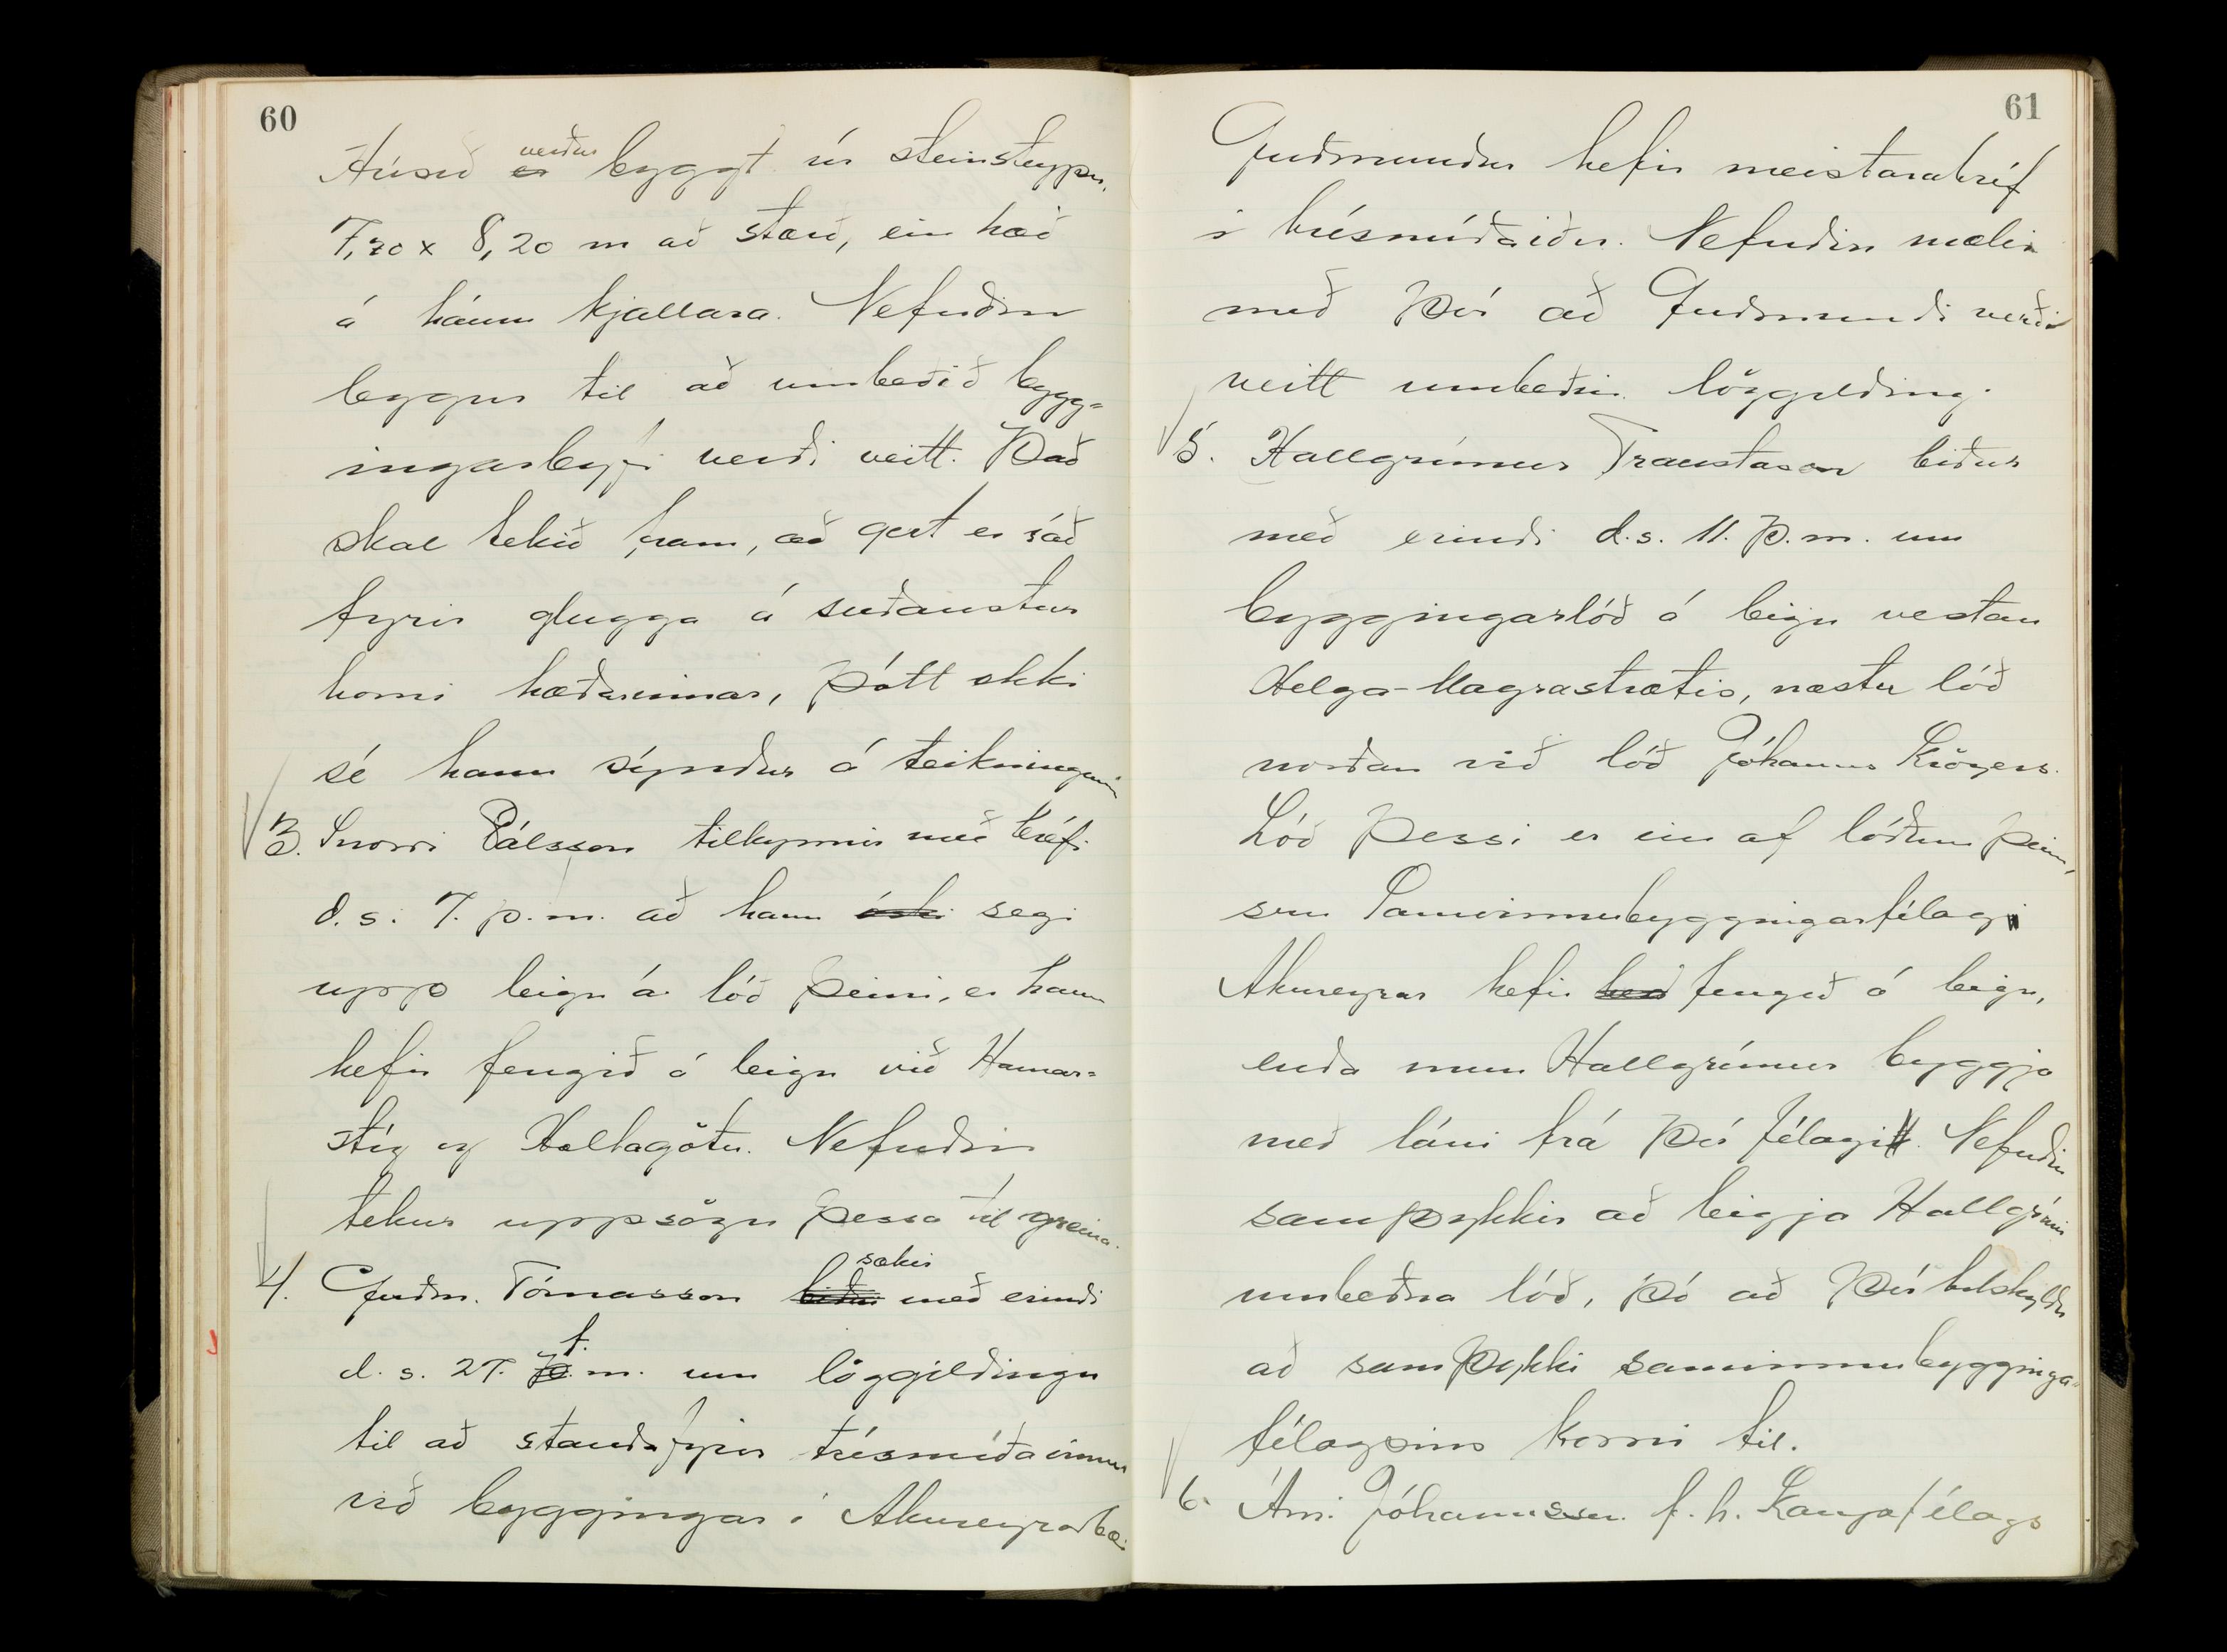 60
Húsið verður byggt úr steinsteypu,
7,70 x 8,20 m að stærð, ein hæð
á háum kjallara. Nefndin
leggur til að umbeðið bygg=
ingarleyfi verði veitt. Það
skal tekið fram, að gert er ráð
fyrir glugga á suðaustur
horni hæðarinnar, þótt ekki
sé hann sýndur á teikningunni
3. Snorri Pálsson tilkynnir með bréfi
d.s. 7. þ.m. að hann óski segi
upp leigu á lóð þeirri, er hann
hefir fengið á leigu við Hamar=
stíg og Holtagötu. Nefndin
tekur uppsögn þessa til greina.
4. Guðm. Tómasson biður sækir með erindi
d.s. 27. f.m. um löggildingu
til að standa fyrir trésmíðavinnu
við byggingar í Akureyrarbæ.
61
Guðmundur hefir meistarabréf
í húsasmíðaiðn. Nefndin mælir
með því að Guðmundi verði
veitt umbeðin löggilding.
5. Hallgrímur Traustason biður
með erindi d.s. 11. þ.m. um
byggingarlóð á leigu vestan
Helga-Magrastrætis, næstu lóð
norðan við lóð Jóhanns Kröyers.
Lóð þessi er ein af lóðum þeim,
sem Samvinnubyggingarfélag
Akureyrar hefir fengið á leigu,
enda mun Hallgrímur byggja
með láni frá því félagi. Nefndin
samþykkir að leigja Hallgrími
umbeðna lóð, þó að því tilskyldu
að samþykki samvinnubygginga=
félagsins komi til.
6. Árni Jóhannsson f.h. Kaupfélags